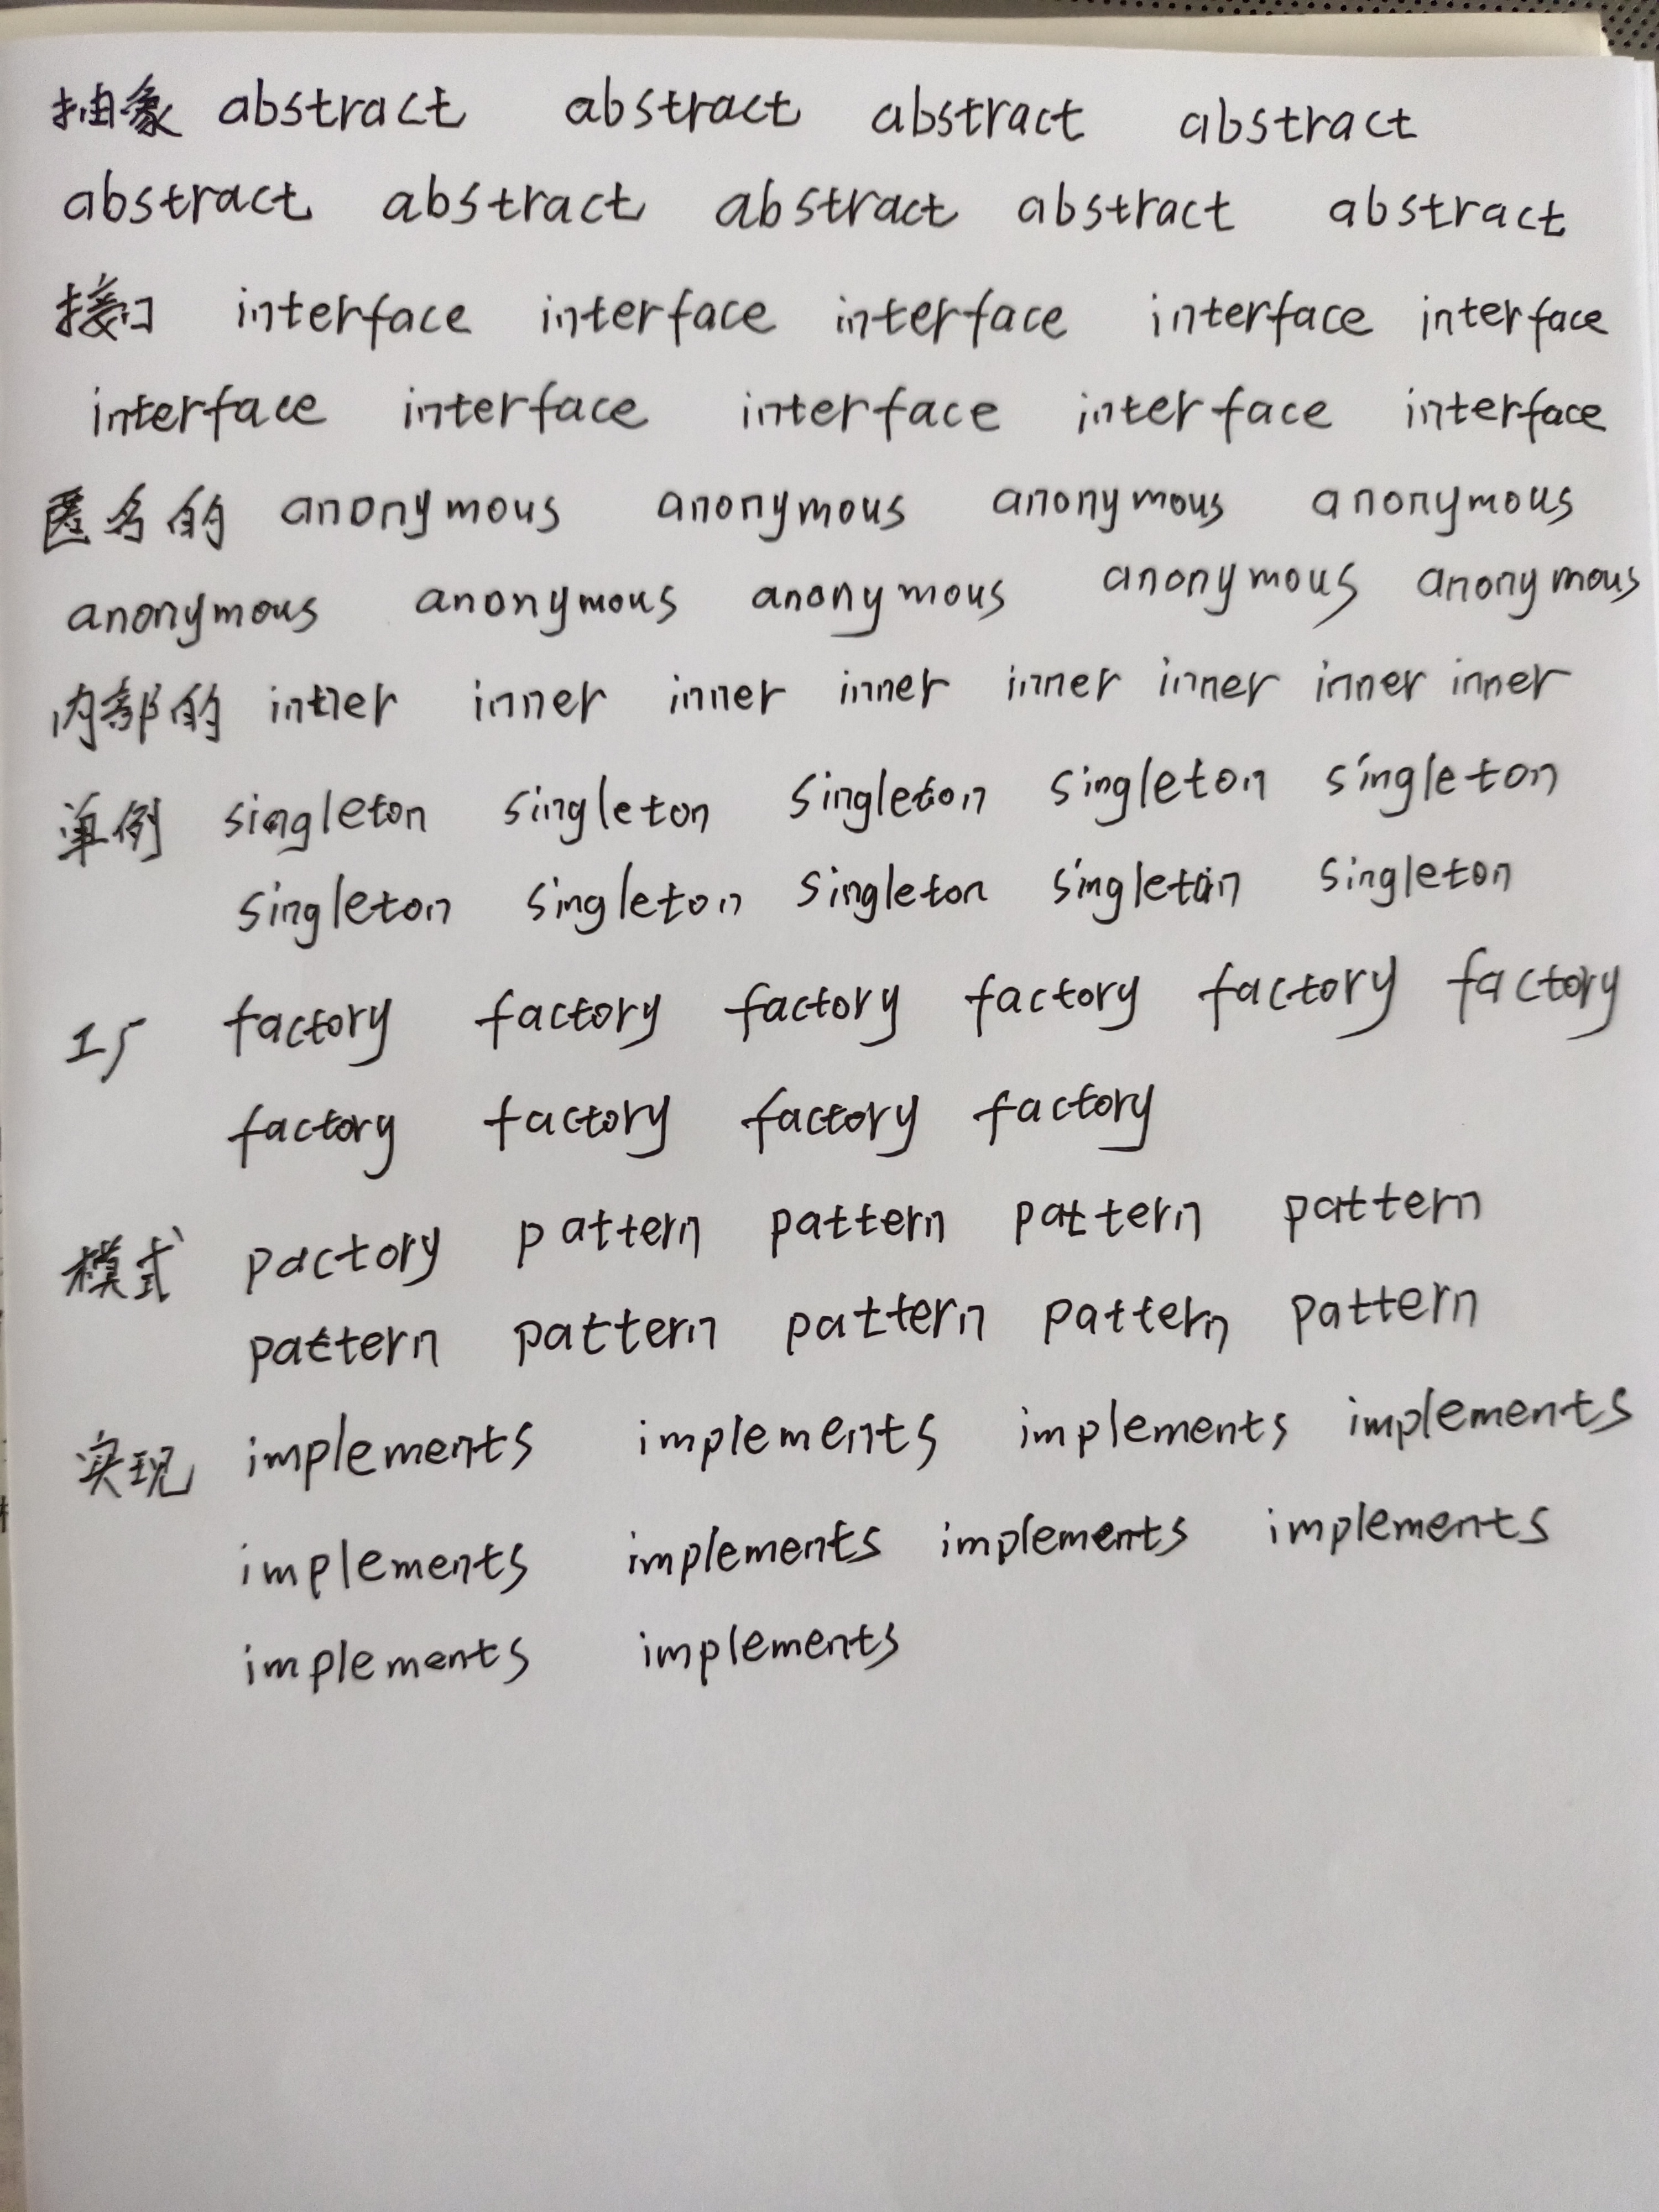 抽象 abstract abstract abstract abstract
abstract abstract abstract abstract abstract
接口 interface interface interface interface interface
interface interface interface interface interface
匿名的 anonymous anonymous anonymous anonymous
anonymous anonymous anonymous anonymous anonymous
内部的 inner inner inner inner inner inner inner
单例 singleton singleton singleton singleton singleton
singleton singleton singleton singleton singleton
工厂 factory factory factory factory factory factory
factory factory factory factory
模式 pactory pattern pattern pattern pattern
pattern pattern pattern pattern pattern
实现 implements implements implements implements
implements implements implements implements
implements implements